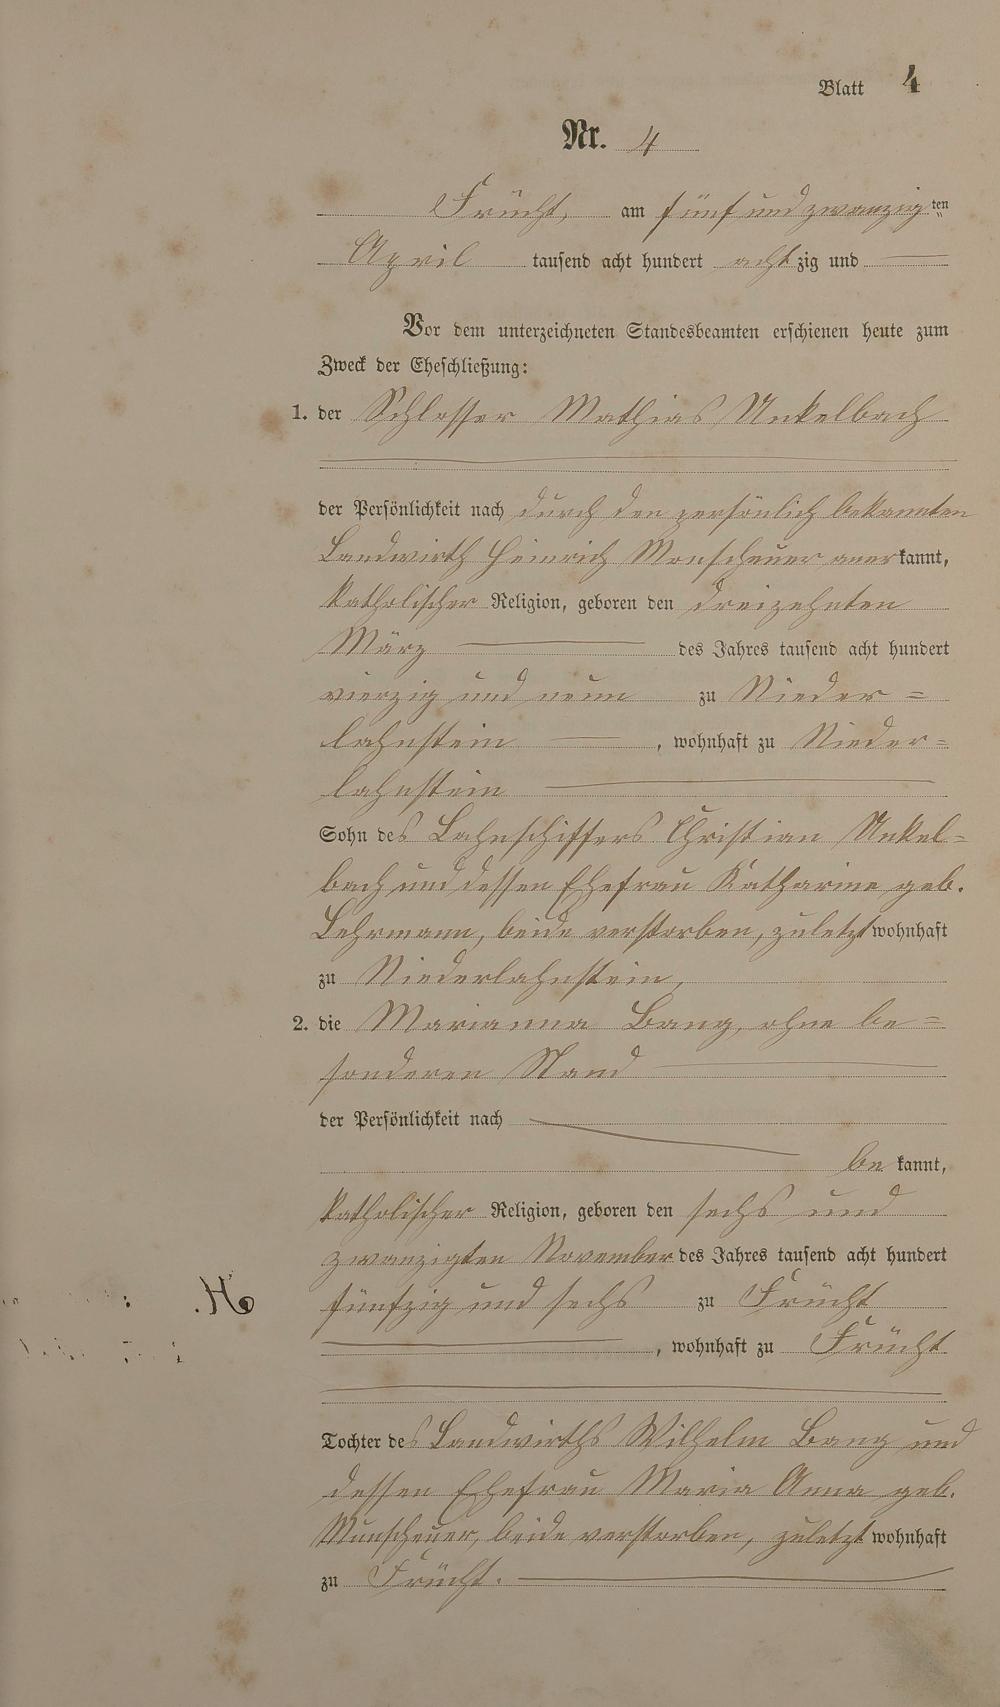 Blatt 4
Nr. 4
Frücht, am fünf und zwanzigten
April tausend acht hundert achtzig und
Vor dem unterzeichneten Standesbeamten erschienen heute zum
Zweck der Eheschließung:
1. der Schlosser Mathias Unkelbach
der Persönlichkeit nach durch den persönlich bekannten
Landwirth Heinrich Monscheuer anerkannt,
katholischer Religion, geboren den dreizehnten
März des Jahres tausend acht hundert
vierzig und neun zu Nieder=
lahnstein, wohnhaft zu Nieder=
lahnstein
Sohn des Lahnschiffers Christian Unkel=
bach und dessen Ehefrau Katharine geb.
Lehrmann, beide verstorben, zuletzt wohnhaft
zu Niederlahnstein,
2. die Marianna Bang, ohne be=
sonderen Stand
der Persönlichkeit nach
bekannt,
katholischer Religion, geboren den sechs und
zwanzigten November des Jahres tausend acht hundert
fünfzig und sechs zu Frücht
, wohnhaft zu Frücht
Tochter des Landwirths Wilhelm Bang und
dessen Ehefrau Maria Anna geb.
Munscheuer, beide verstorben, zuletzt wohnhaft
zu Frücht.